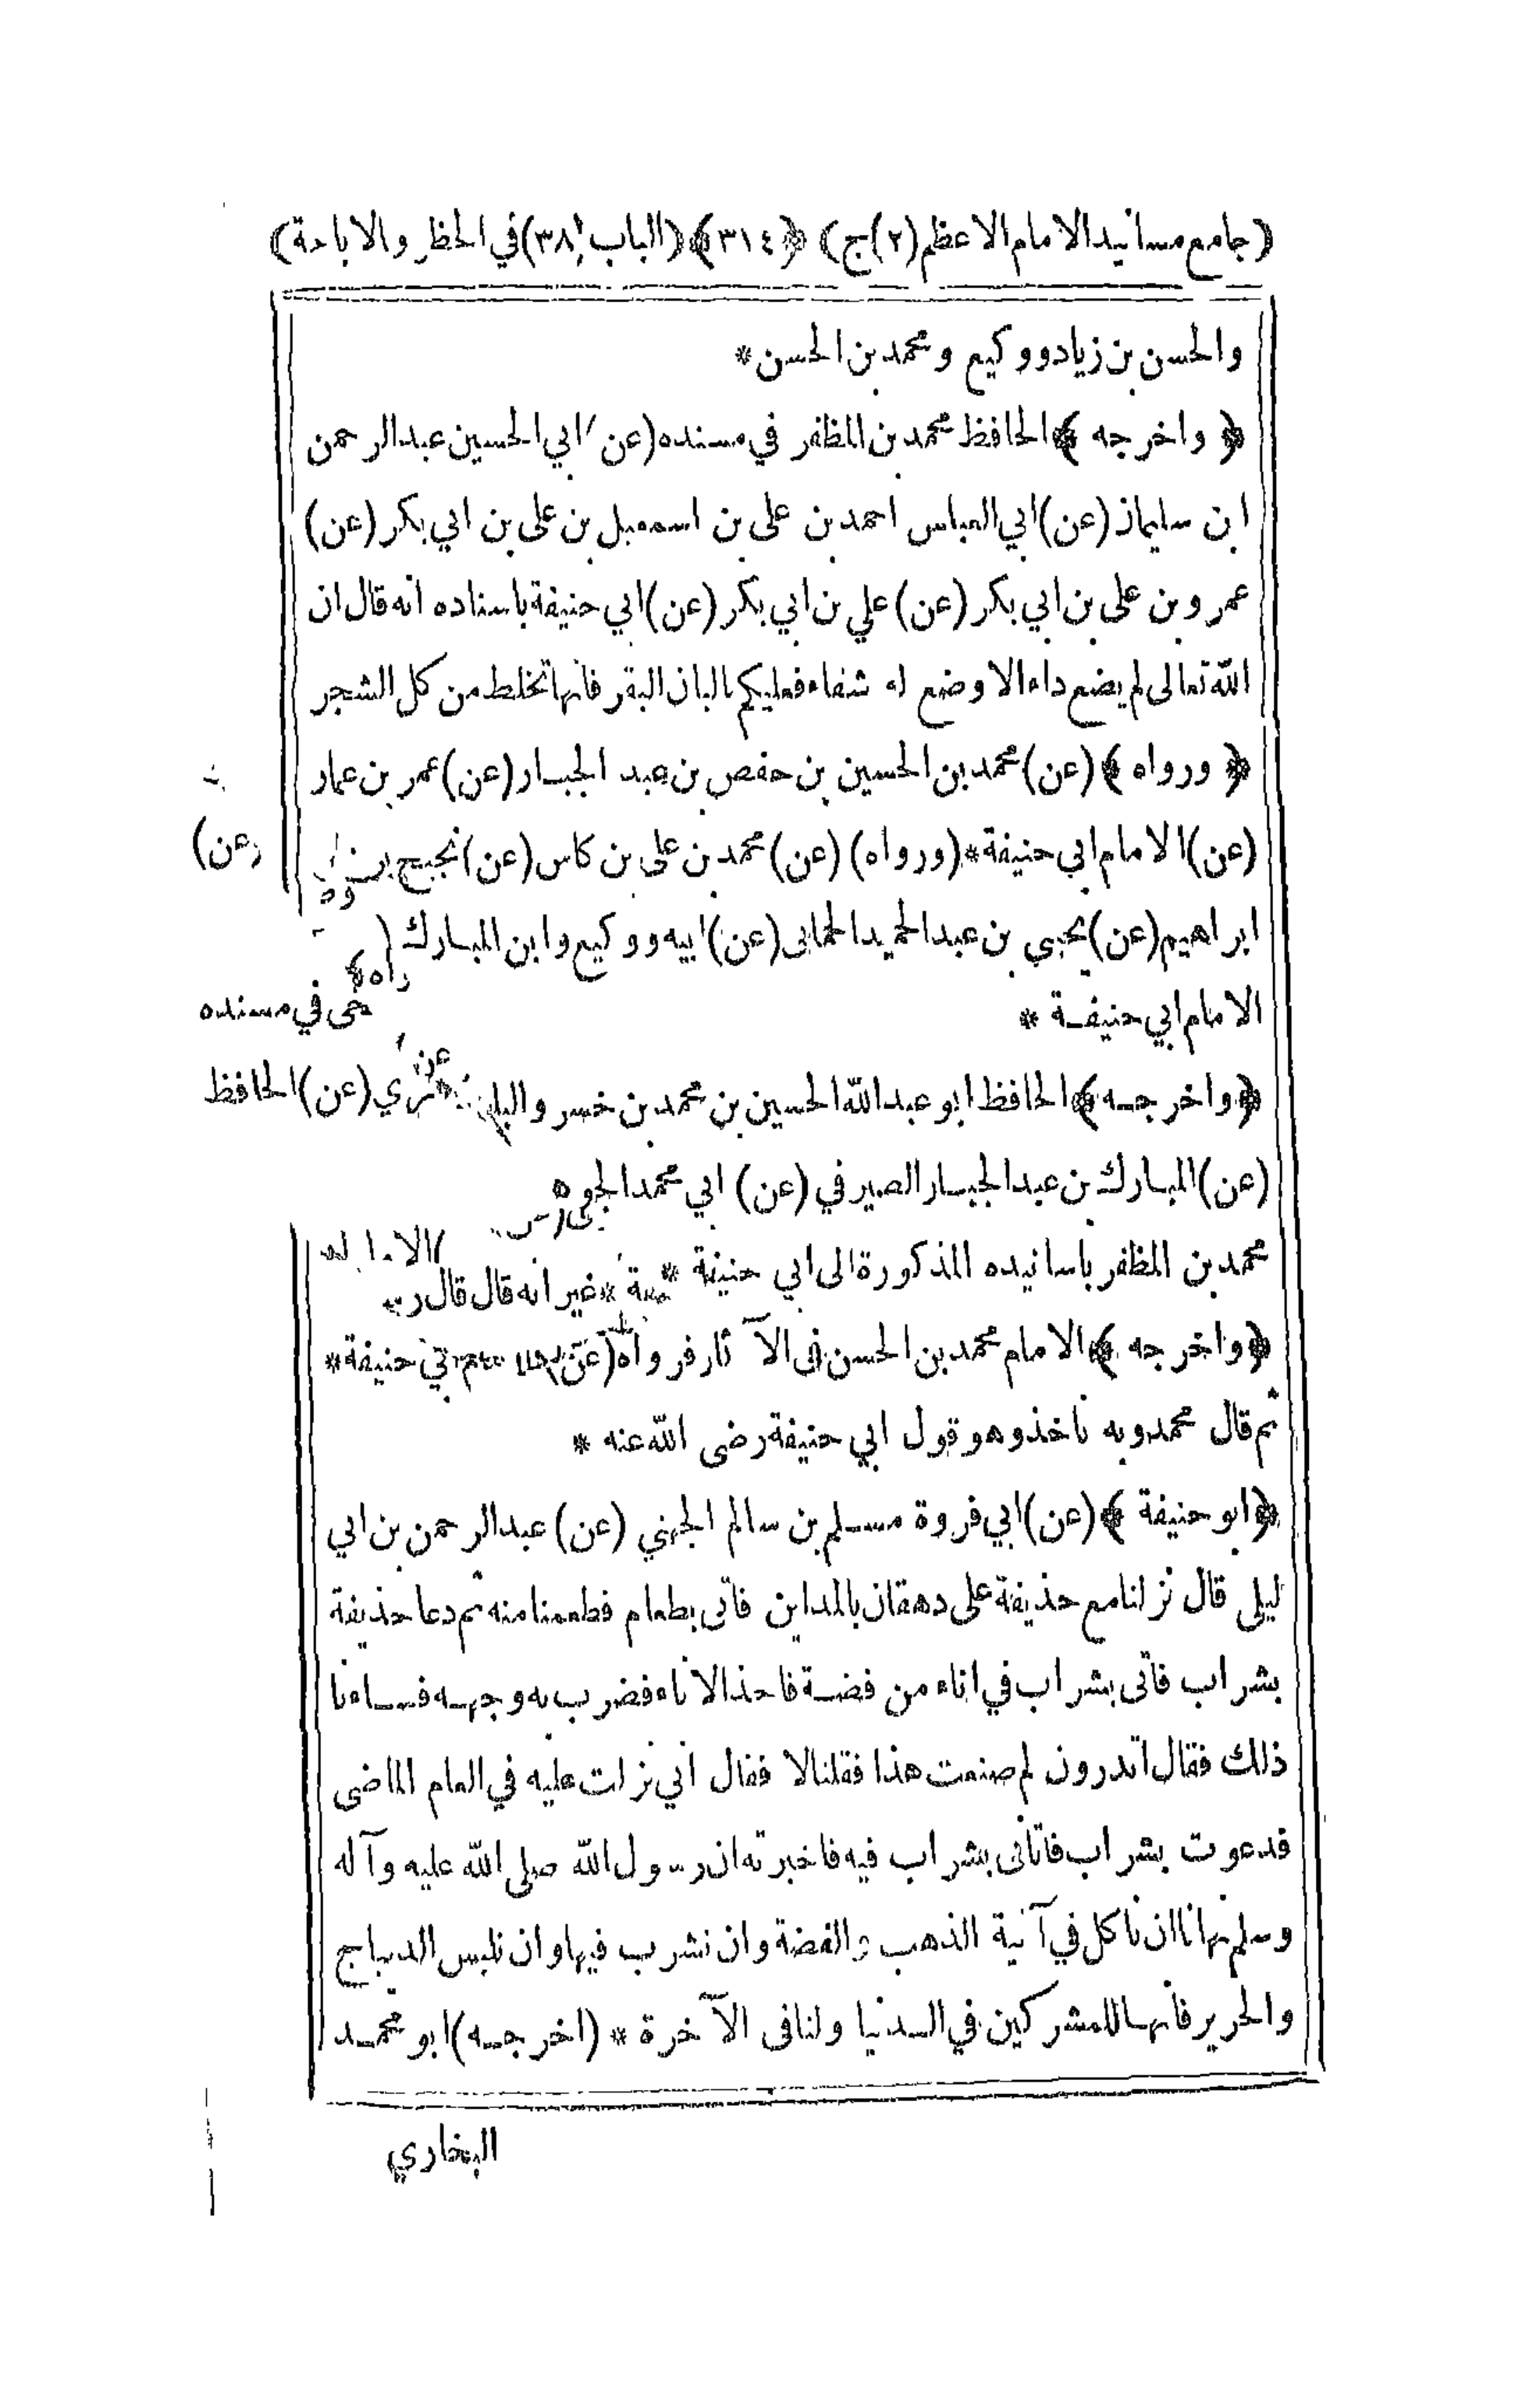 (جامع مسانيد الامام الاعظم (٢) ج) ﴿٣١٤﴾ (الباب ٣٨) في الحظر والاباحة)
والحسن بن زياد ووكيع ومحمد بن الحسن *
﴿ واخرجه ﴾ الحافظ محمد بن المظفر في مسنده (عن) ابي الحسين عبد الرحمن
ابن سليمان (عن) ابي العباس احمد بن على بن اسمعيل بن على بن ابي بكر (عن)
عمرو بن على بن ابي بكر (عن) علي بن ابي بكر (عن) ابي حنيفة باسناده انه قال ان
الله تعالى لم يضع داء الا وضع له شفاء فعليكم بالبان البقر فانها تخلط من كل الشجر
﴿ ورواه ﴾ (عن) محمد بن الحسين بن حفص بن عبد الجبار (عن) عمر بن عمار
(عن) الامام ابي حنيفة * (ورواه) (عن) محمد بن على بن كاس (عن) نجيح بن
ابراهيم (عن) يحيى بن عبد الحميد الحمانى (عن) ابيه ووكيع وابن المبارك (عن)
الامام ابي حنيفة *
﴿ واخرجه ﴾ الحافظ ابو عبد الله الحسين بن محمد بن خسرو في مسنده
(عن) المبارك بن عبد الجبار الصيرفي (عن) ابي محمد الجوهري (عن) الحافظ
محمد بن المظفر باسانيده المذكورة الى ابي حنيفة * غير انه قال قال
﴿ واخرجه ﴾ الامام محمد بن الحسن في الآثار فرواه (عن) حنيفة *
ثم قال محمد وبه ناخذ وهو قول ابي حنيفة رضى الله عنه *
﴿ ابو حنيفة ﴾ (عن) ابي فروة مسلم بن سالم الجهني (عن) عبد الرحمن بن ابي
ليلى قال نزلنا مع حذيفة على دهقان بالمداين فاتى بطعام فطعمنا منه ثم دعا حذيفة
بشراب فاتى بشراب في اناء من فضة فاخذ الاناء فضرب به وجهه فساءنا
ذلك فقال اتدرون لم صنعت هذا فقلنا لا فقال اني نزلت عليه في العام الماضى
فدعوت بشراب فاتانى بشراب فيه فاخبرته ان رسول الله صلى الله عليه وآله
وسلم نهانا ان ناكل في آنية الذهب والفضة وان نشرب فيها وان نلبس الديباج
والحرير فانها للمشركين في الدنيا ولنا فى الآخرة * (اخرجه) ابو محمد
البخاري